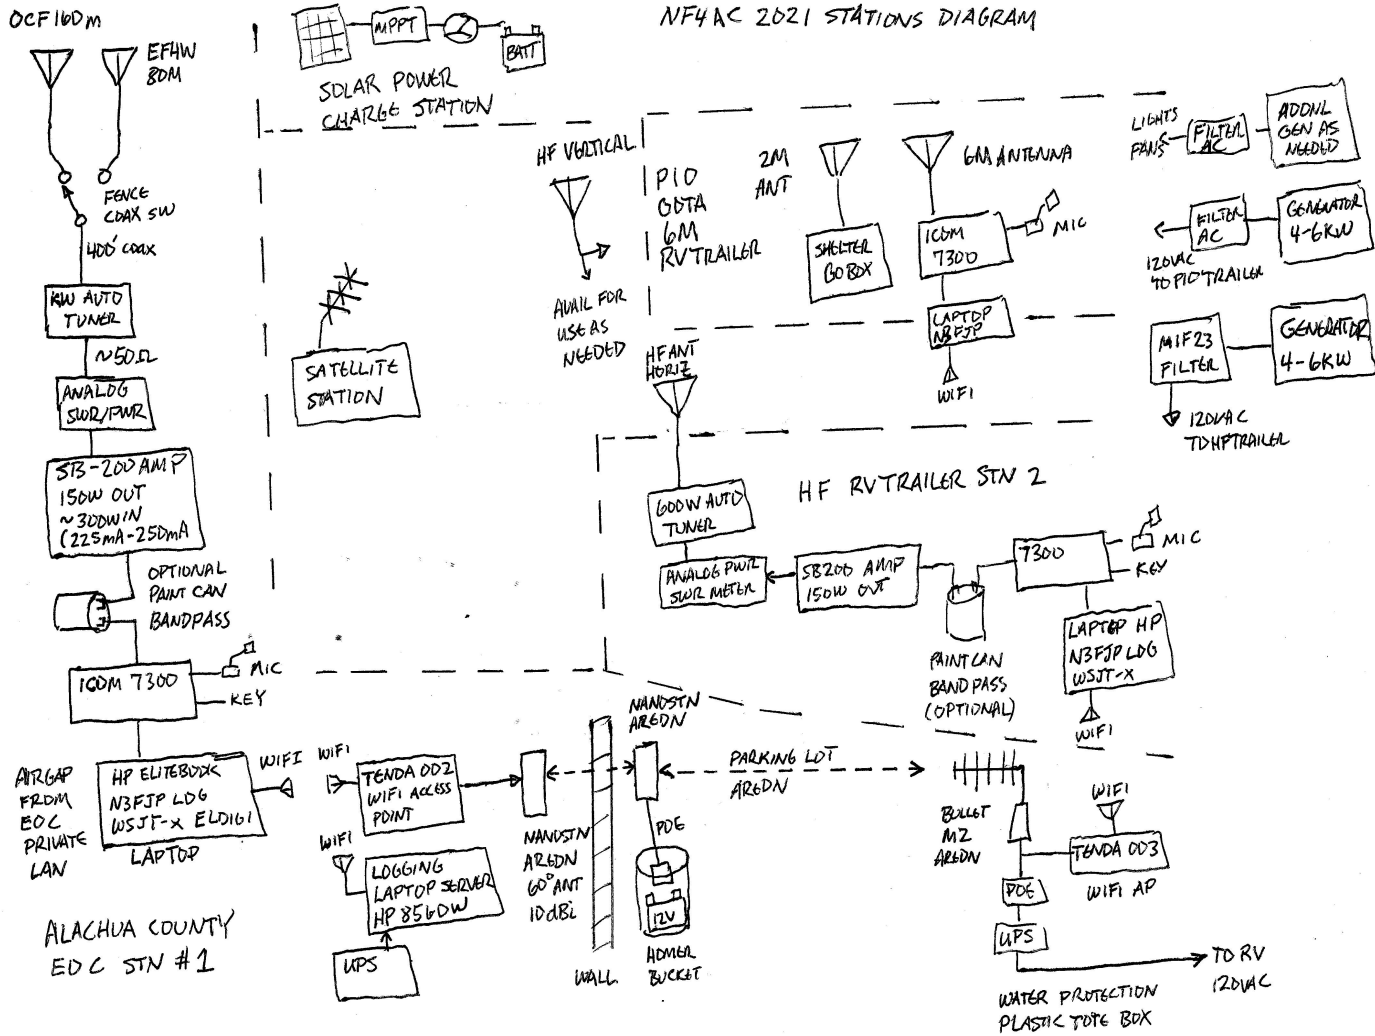 NF4AC 2021 STATIONS DIAGRAM
OCF160m
EFHW
80M
FENCE
COAX SW
400' COAX
KW AUTO
TUNER
~50Ω
ANALOG
SWR/PWR
SB-200 AMP
150W OUT
~300W IN
(225mA-250mA
OPTIONAL
PAINT CAN
BANDPASS
ICOM 7300
MIC
KEY
AIRGAP
FROM
EOC
PRIVATE
LAN
HP ELITEBOOK
N3FJP LOG
WSJT-X FLDIGI
LAPTOP
WIFI
ALACHUA COUNTY
EOC STN #1
MPPT
BATT
SOLAR POWER
CHARGE STATION
SATELLITE
STATION
HF VERTICAL
AVAIL FOR
USE AS
NEEDED
PIO
GOTA
6M
RV TRAILER
2M
ANT
SHELTER
GO BOX
6M ANTENNA
ICOM
7300
MIC
LAPTOP
N3FJP
WIFI
LIGHTS
FANS
FILTER
AC
ADDNL
GEN AS
NEEDED
FILTER
AC
GENERATOR
4-6KW
120VAC
TO PIO TRAILER
MIF23
FILTER
GENERATOR
4-6KW
120VAC
TO HF TRAILER
HF ANT
HORIZ
HF RV TRAILER STN 2
600W AUTO
TUNER
ANALOG PWR
SWR METER
SB200 AMP
150W OUT
PAINT CAN
BANDPASS
(OPTIONAL)
7300
MIC
KEY
LAPTOP HP
N3FJP LOG
WSJT-X
WIFI
WIFI
TENDA 002
WIFI ACCESS
POINT
WIFI
LOGGING
LAPTOP SERVER
HP 8560W
UPS
NANOSTN
AREDN
60° ANT
10dBi
WALL
NANOSTN
AREDN
POE
12V
HOMER
BUCKET
PARKING LOT
AREDN
BULLET
M2
AREDN
WIFI
TENDA 003
WIFI AP
POE
UPS
TO RV
120VAC
WATER PROTECTION
PLASTIC TOTE BOX